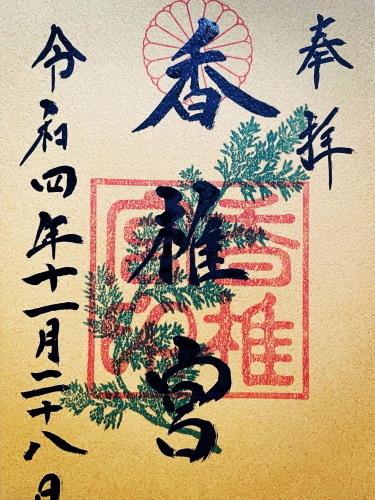 奉拝
香椎宮
香椎宮印
令和四年十一月二十八日